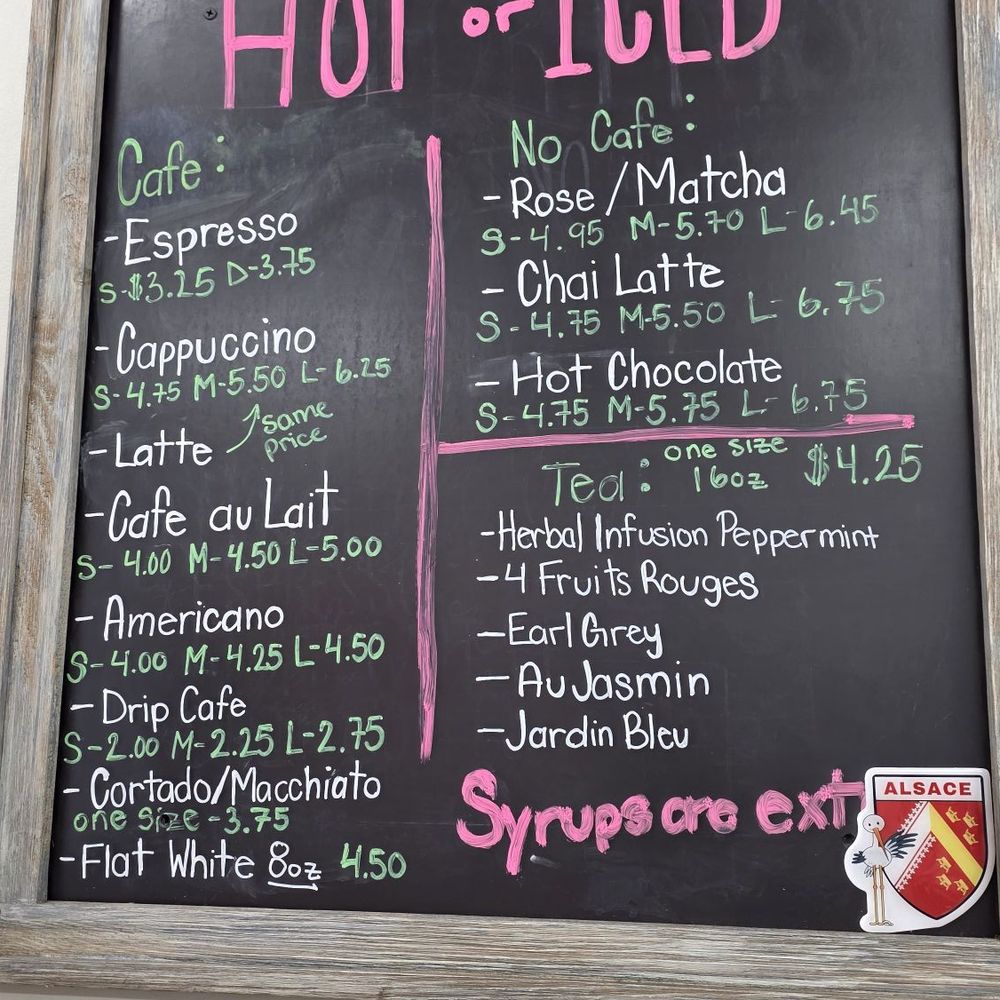 HOT or ICED
Cafe:
-Espresso
S-$3.25 D-3.75
-Cappuccino
S-4.75 M-5.50 L-6.25
-Latte
same
price
-Cafe au Lait
S-4.00 M-4.50 L-5.00
-Americano
S-4.00 M-4.25 L-4.50
-Drip Cafe
S-2.00 M-2.25 L-2.75
-Cortado/Macchiato
one size -3.75
-Flat White 8oz 4.50
No Cafe:
-Rose/Matcha
S-4.95 M-5.70 L-6.45
-Chai Latte
S-4.75 M-5.50 L-6.75
-Hot Chocolate
S-4.75 M-5.75 L-6.75
Tea: one size 16oz $4.25
-Herbal Infusion Peppermint
-4 Fruits Rouges
-Earl Grey
-Au Jasmin
-Jardin Bleu
Syrups are ext
ALSACE